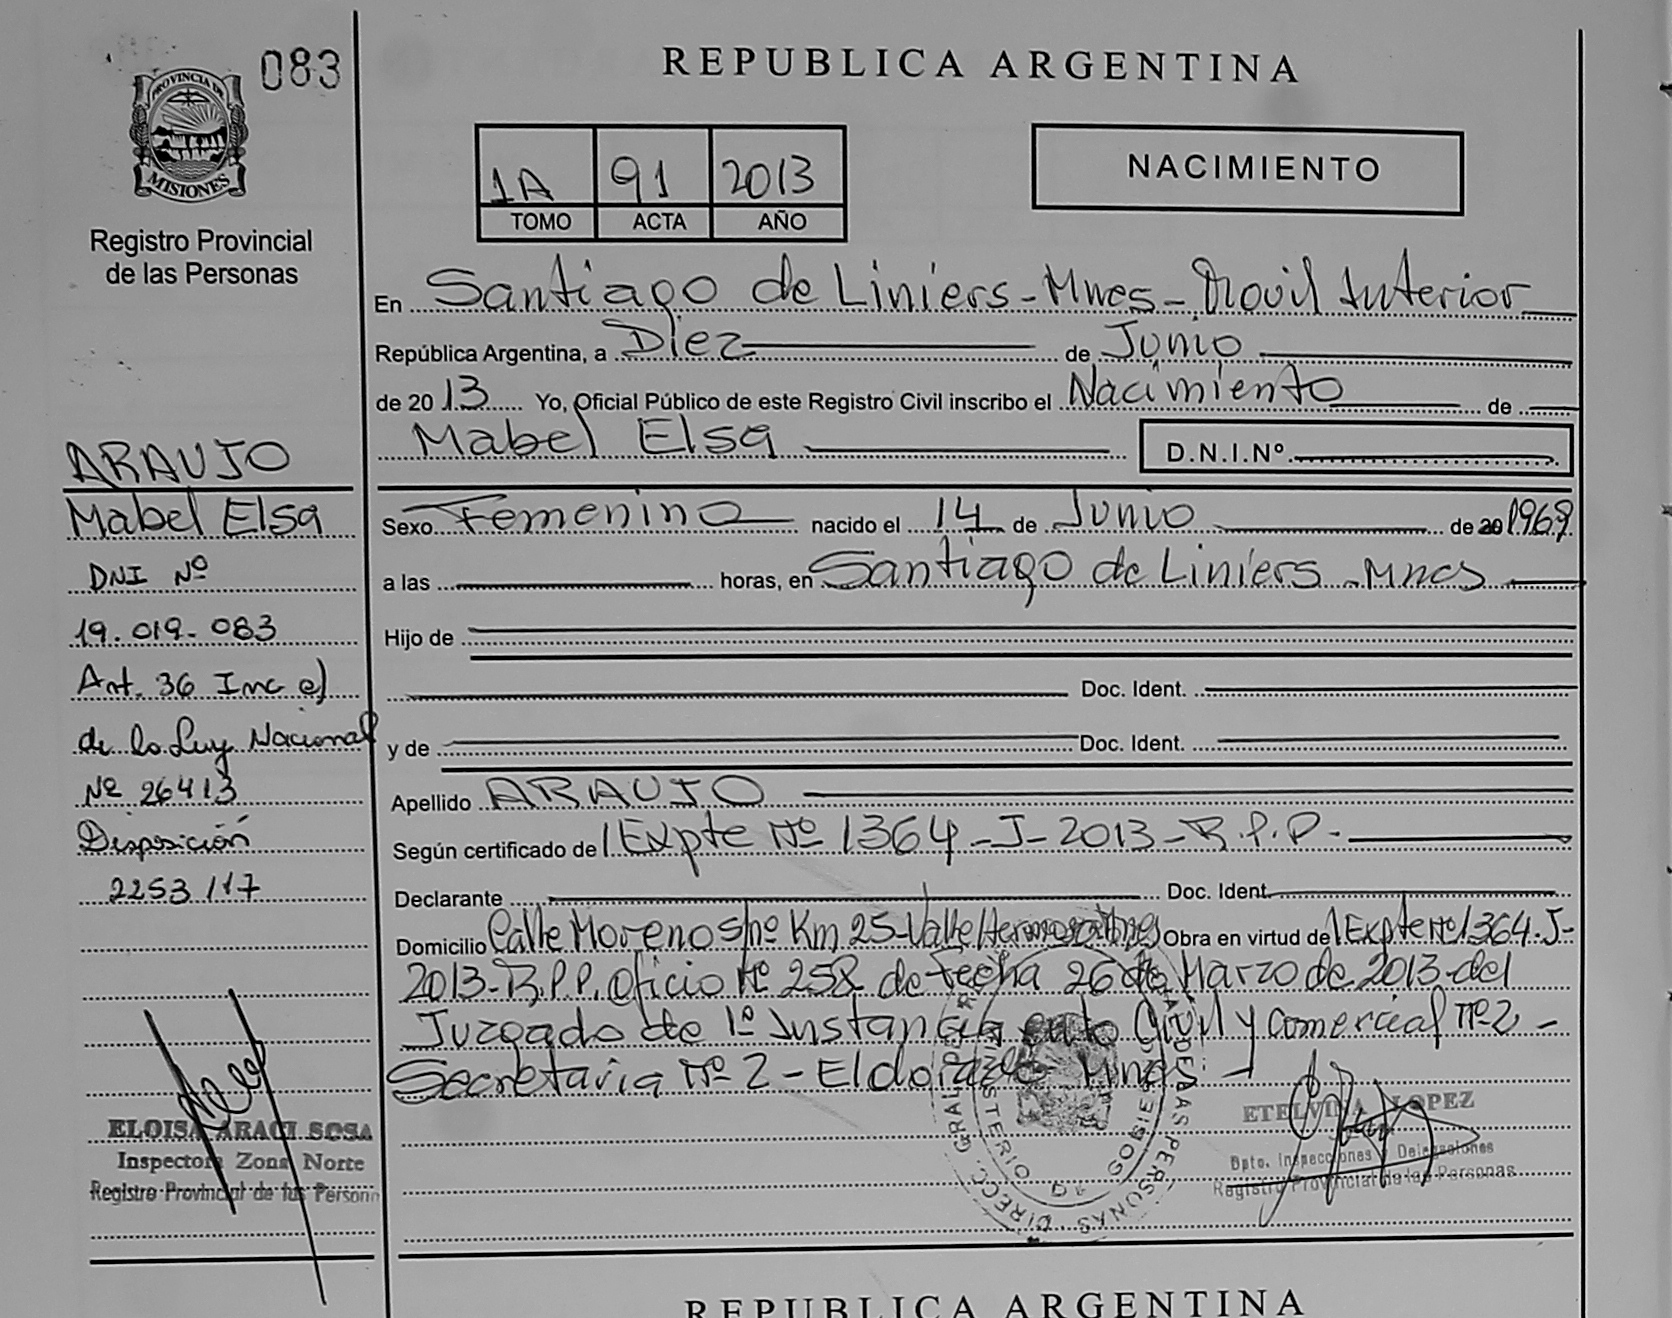 083
PROVINCIA DE
MISIONES
Registro Provincial
de las Personas
REPUBLICA ARGENTINA
1A 91 2013
TOMO ACTA AÑO
NACIMIENTO
En Santiago de Liniers - Mnes - Movil Interior
República Argentina, a Diez de Junio
de 2013 Yo, Oficial Público de este Registro Civil inscribo el Nacimiento de
Mabel Elsa D.N.I.Nº
ARAUJO
Mabel Elsa
DNI Nº
19.019.083
Art. 36 Inc e)
de la Ley Nacional
Nº 26413
Disposición
2253/17
Sexo Femenino nacido el 14 de Junio de 20 1969
a las horas, en Santiago de Liniers - Mnes
Hijo de
Doc. Ident.
y de Doc. Ident.
Apellido ARAUJO
Según certificado de Expte Nº 1364-J-2013-R.P.P.
Declarante Doc. Ident.
Domicilio Calle Moreno S/nº Km 25-Valle Hermoso Mnes Obra en virtud de Expte Nº 1364-J-
2013-R.P.P. Oficio Nº 258 de fecha 26 de Marzo de 2013 del
Juzgado de 1º Instancia en lo Civil y Comercial Nº 2 -
Secretaria Nº 2 - Eldorado Mnes -
ELOISA ARACI SOSA
Inspectora Zona Norte
Registro Provincial de las Personas
ETELVINA LOPEZ
Dpto. Inspecciones y Delegaciones
Registro Provincial de las Personas
REPUBLICA ARGENTINA